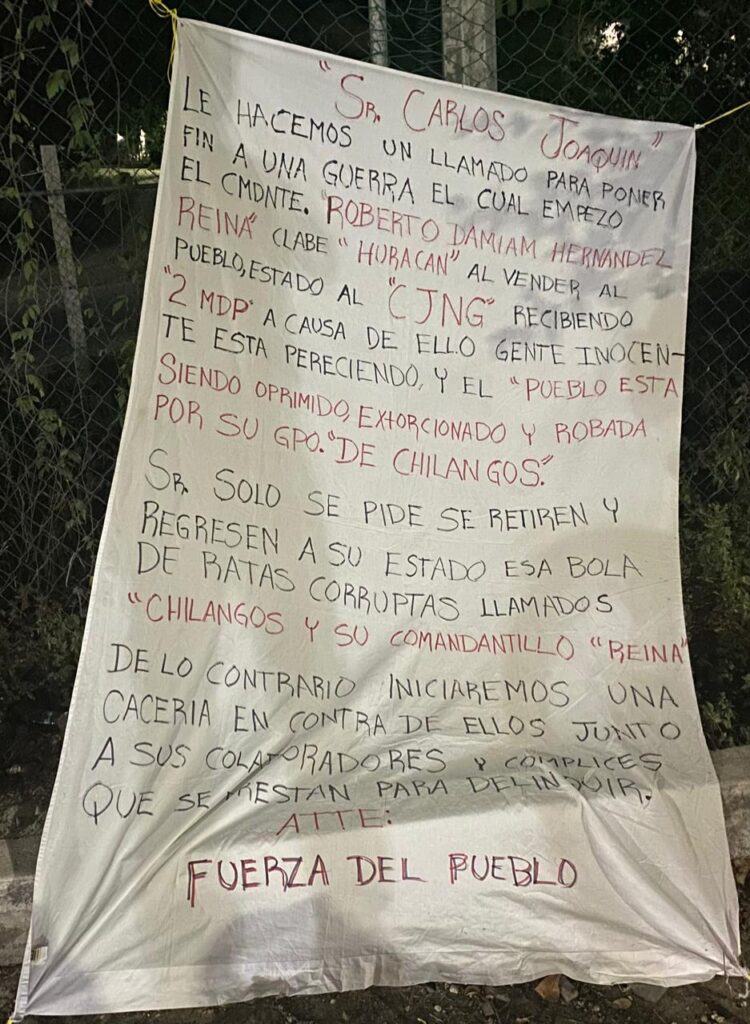 "SR. CARLOS JOAQUIN"
LE HACEMOS UN LLAMADO PARA PONER
FIN A UNA GUERRA EL CUAL EMPEZO
EL CMDNTE. "ROBERTO DAMIAM HERNANDEZ
REINA" CLABE "HURACAN" AL VENDER AL
PUEBLO, ESTADO AL "CJNG" RECIBIENDO
"2 MDP" A CAUSA DE ELLO GENTE INOCEN-
TE ESTA PERECIENDO, Y EL "PUEBLO ESTA
SIENDO OPRIMIDO, EXTORCIONADO Y ROBADA
POR SU GPO. "DE CHILANGOS."
SR. SOLO SE PIDE SE RETIREN Y
REGRESEN A SU ESTADO ESA BOLA
DE RATAS CORRUPTAS LLAMADOS
"CHILANGOS Y SU COMANDANTILLO "REINA"
DE LO CONTRARIO INICIAREMOS UNA
CACERIA EN CONTRA DE ELLOS JUNTO
A SUS COLABORADORES Y COMPLICES
QUE SE PRESTAN PARA DELINQUIR.
ATTE:
FUERZA DEL PUEBLO